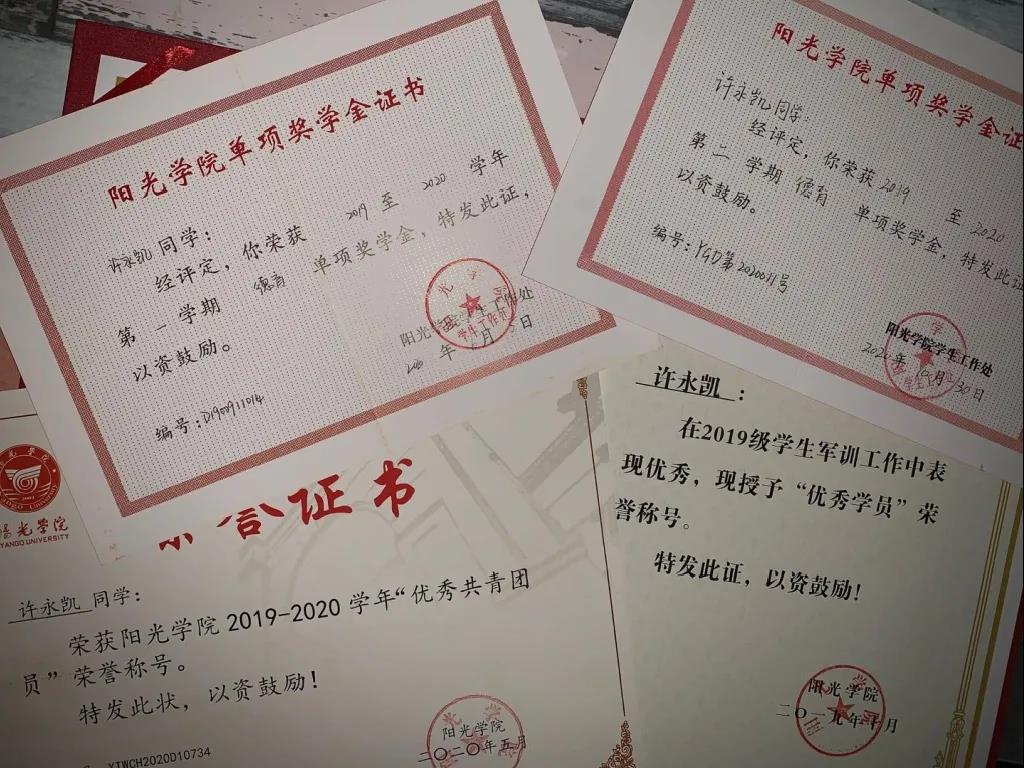 阳光学院单项奖学金证书
许永凯同学：
经评定，你荣获 2019 至 2020 学年
第一学期 德育 单项奖学金，特发此证，
以资鼓励。
阳光学院学生工作处
年 月 日
编号：D1900911014
阳光学院单项奖学金证
许永凯同学：
经评定，你荣获 2019 至 2020
第二学期 德育 单项奖学金，特发此证
以资鼓励。
编号：YGD第2020011号
阳光学院学生工作处
月30日
阳光学院
YANGO UNIVERSITY
证书
许永凯同学：
荣获阳光学院2019-2020学年“优秀共青团
员”荣誉称号。
特发此状，以资鼓励！
阳光学院
二〇二〇年五月
YTWCH2020D10734
许永凯：
在2019级学生军训工作中表
现优秀，现授予“优秀学员”荣
誉称号。
特发此证，以资鼓励！
阳光学院
二〇一九年十月